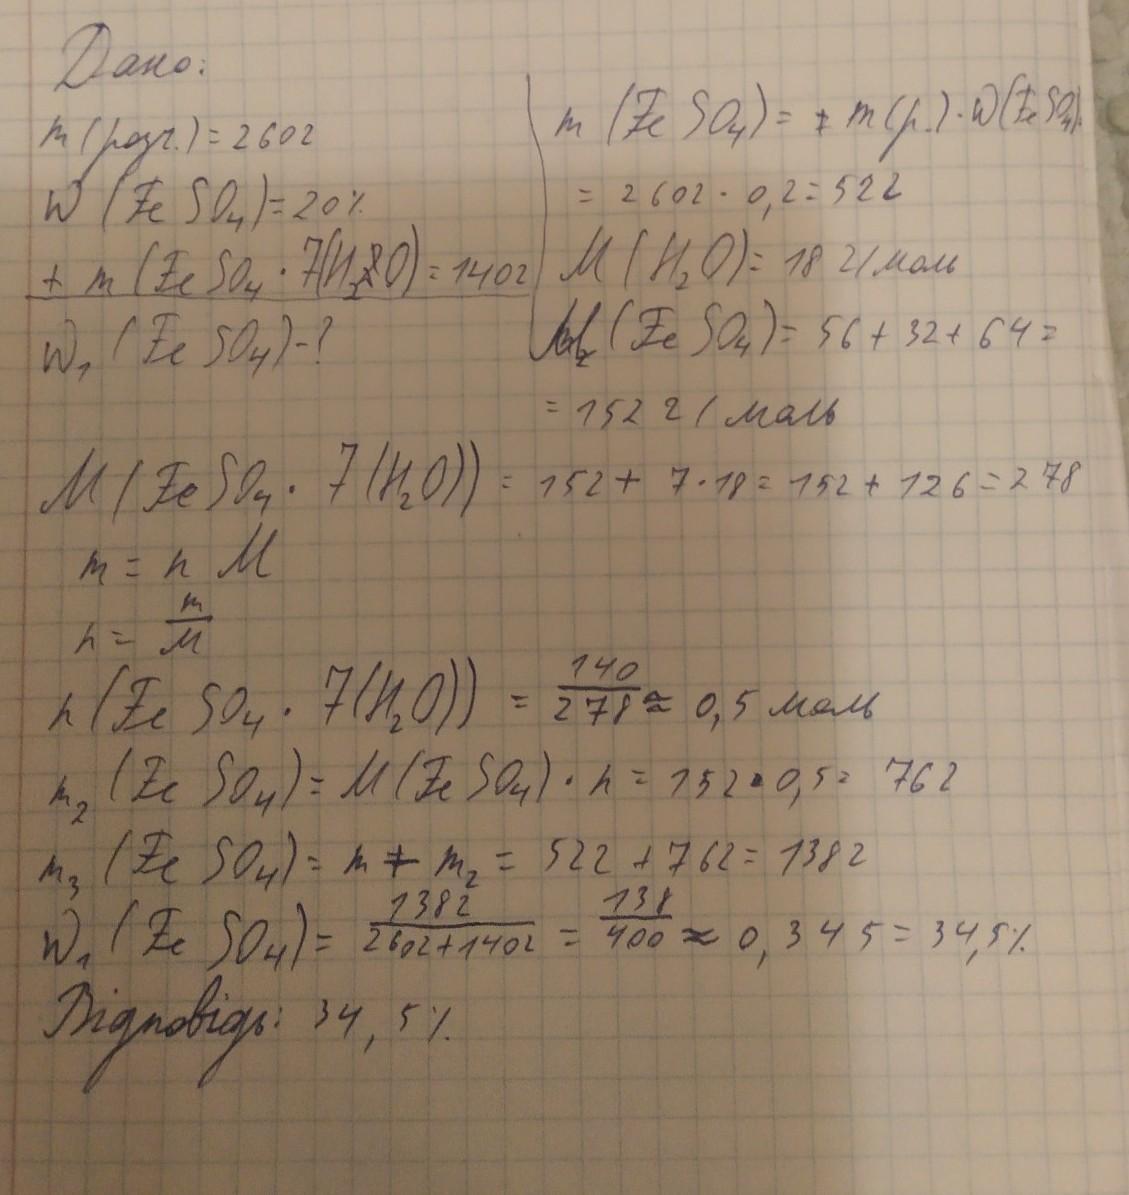 Дано:
m (розч.) = 260г
W (FeSO₄) = 20%
+ m (FeSO₄ · 7(H₂O) = 140г
W₁ (FeSO₄) - ?
m (FeSO₄) = m(р.) · W(FeSO₄)
= 260г · 0,2 = 52г
M (H₂O) = 18 г/моль
M (FeSO₄) = 56 + 32 + 64 =
= 152 г/моль
M (FeSO₄ · 7(H₂O)) = 152 + 7·18 = 152 + 126 = 278
m = n M
n = m/M
n (FeSO₄ · 7(H₂O)) = 140/278 ≈ 0,5 моль
m₂ (FeSO₄) = M (FeSO₄) · n = 152 · 0,5 = 76г
m₃ (FeSO₄) = m + m₂ = 52г + 76г = 138г
W₁ (FeSO₄) = 138г/260г+140г = 138/400 ≈ 0,345 = 34,5%
Відповідь: 34,5%